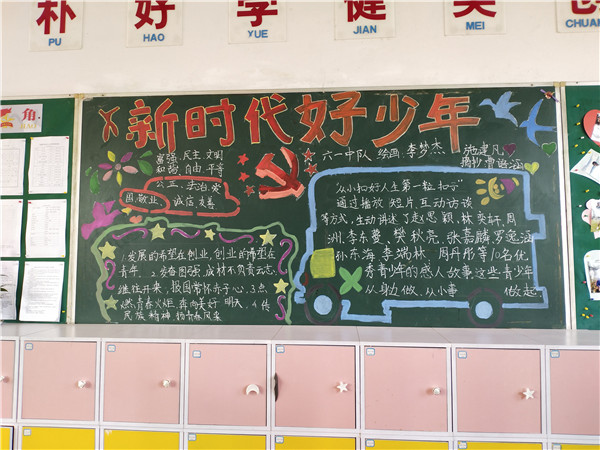 朴 好 学 健 美 创
PU HAO YUE JIAN MEI CHUAN
角
新时代好少年
六一中队 绘画:李梦杰 施建凡
摘抄曹诣涵
富强 民主 文明
和谐 自由 平等
公正 法治 爱
国 敬业 诚信 友善
1.发展的希望在创业,创业的希望在
青年。2.奋奋图强,成材不负青云志,
继往开来,报国常怀赤子心。3.点
燃青春火炬,奔向美好明天。4.传
民族精神,扬青春风采
"从小扣好人生第一粒扣子"
通过播放短片、互动访谈
等方式,生动讲述了赵思颖,林芙轩,周
洲,李东蔓,樊秋亮,张嘉麟,罗逸涵
孙东海,李瑞林,周丹彤等10名优
秀青少年的感人故事这些青少年
从身边做、从小事做起